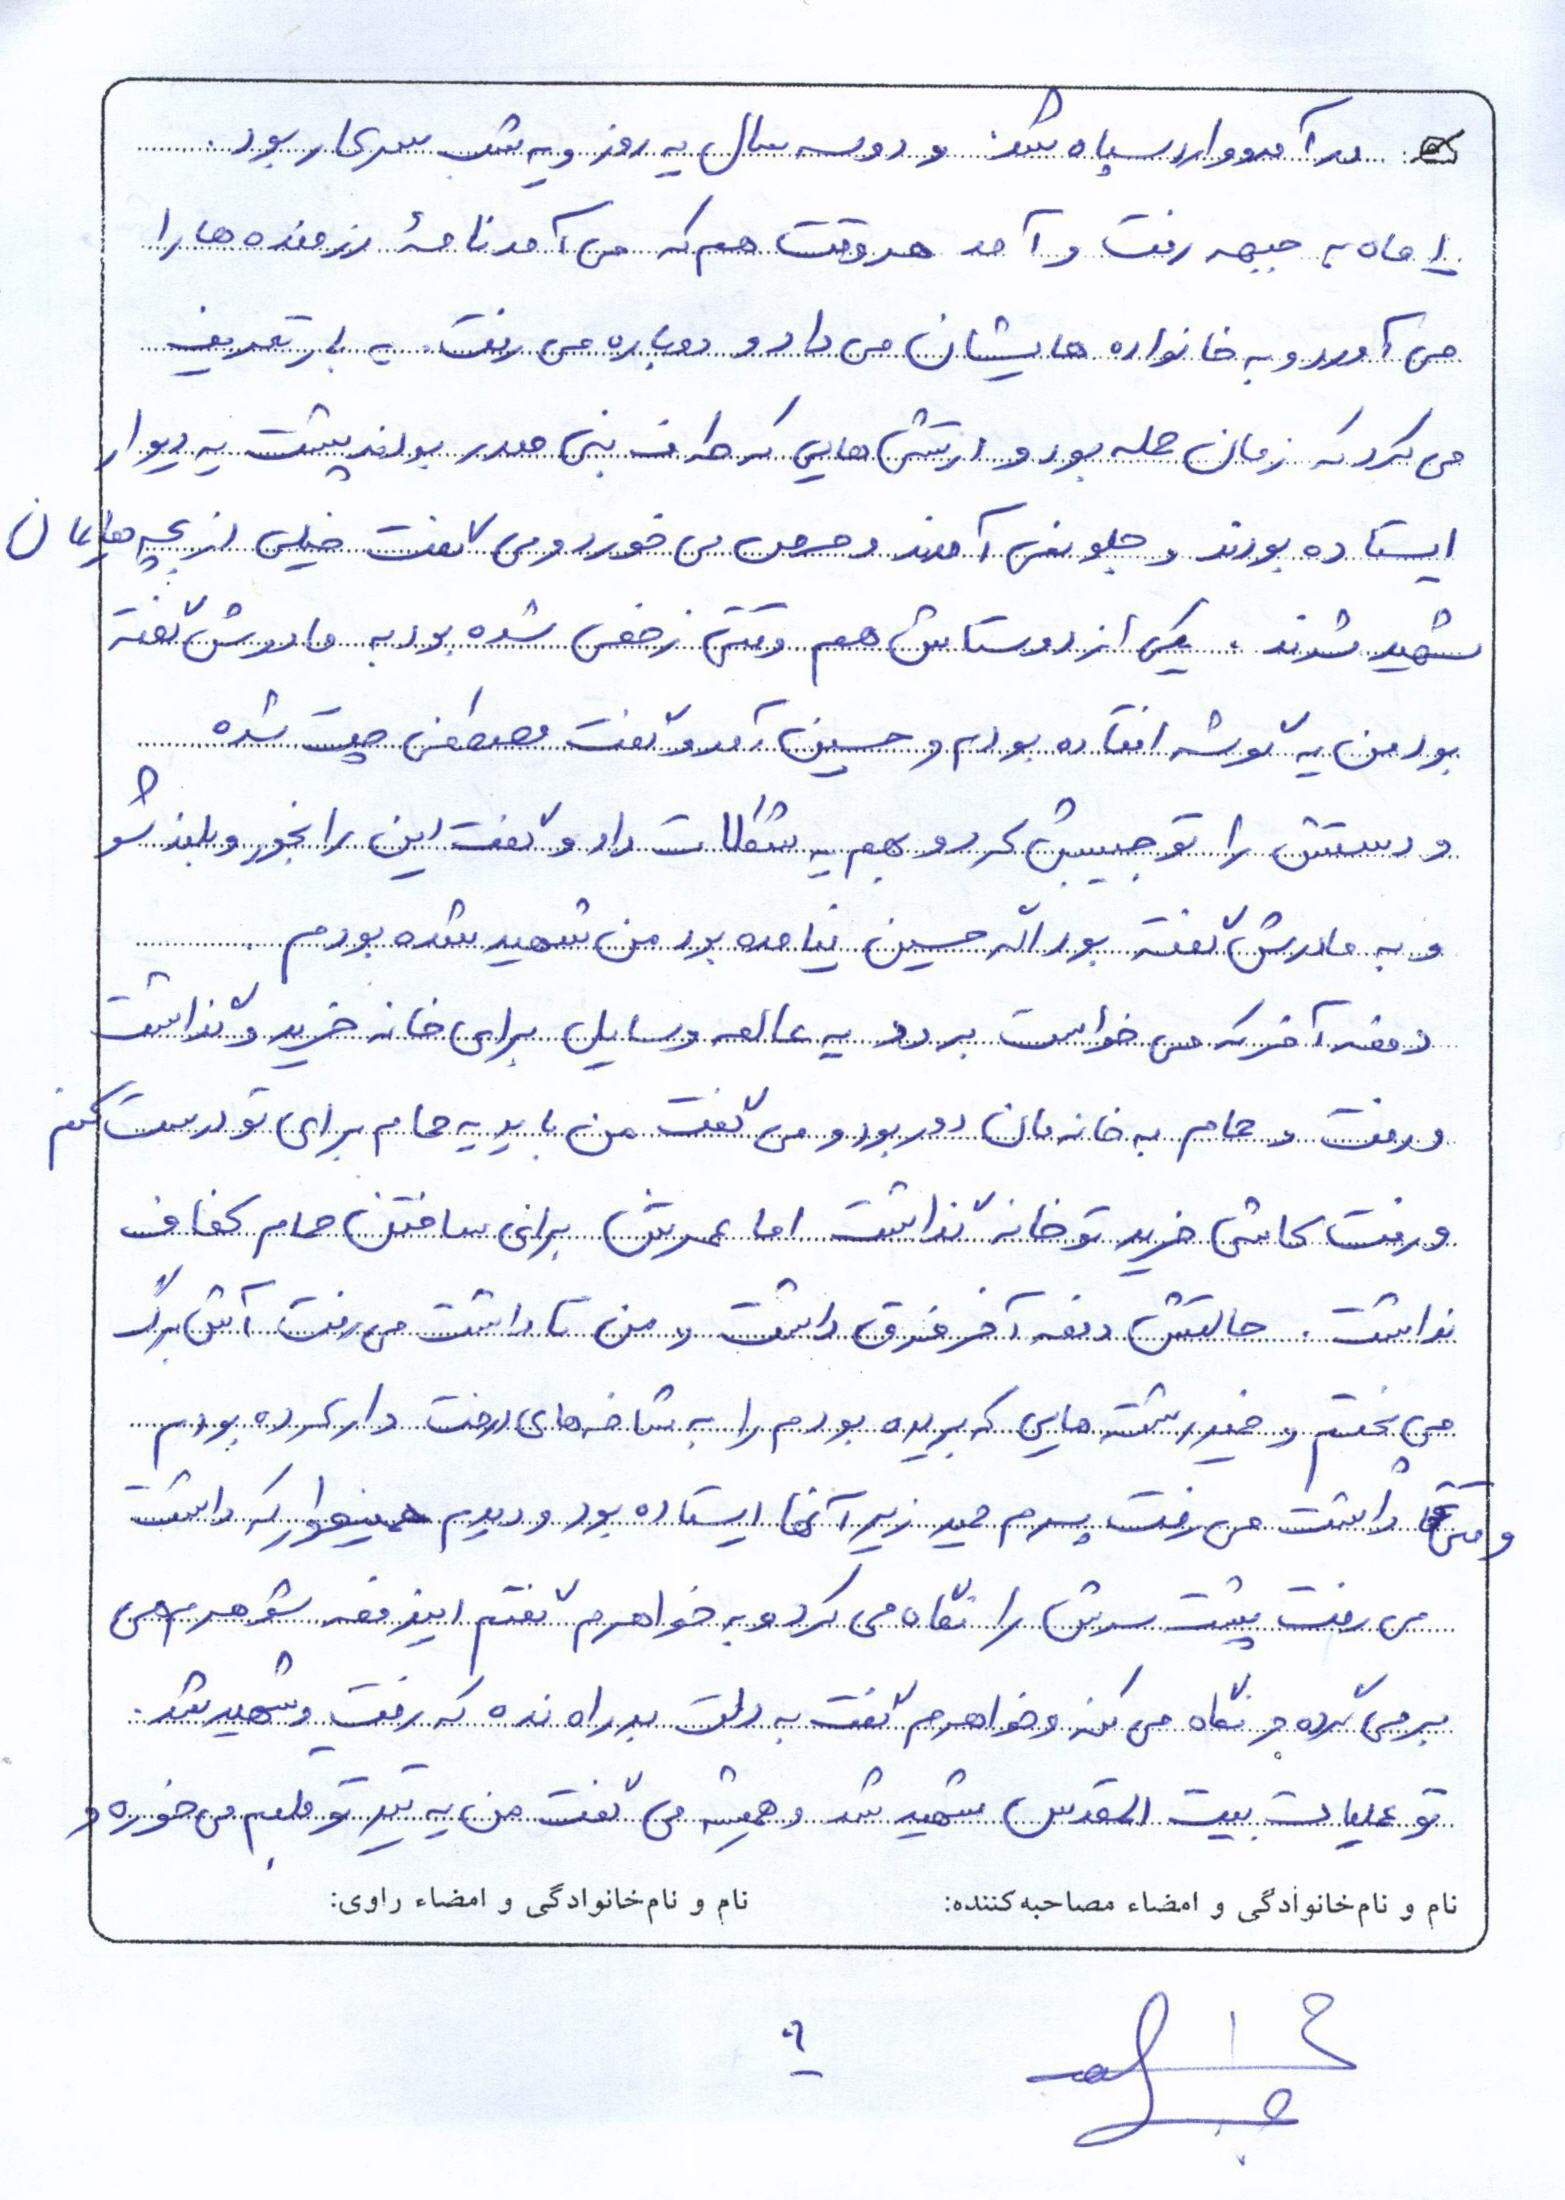 در آمد و وارد سپاه شد و دو سه سال یه روز و یه شب سرکار بود.
۱۰ ماه به جبهه رفت و آمد هر وقت هم که می آمد نامهٔ رزمنده ها را
می آورد و به خانواده هایشان می داد و دوباره می رفت. یه بار تعریف
می کرد که زمان حمله بود و ارتش هایی که طرف بنی صدر بودند پشت یه دیوار
ایستاده بودند و جلو نمی آمدند و حرص می خورد و می گفت خیلی از بچه هایمان
شهید شدند. یکی از دوستاش هم وقتی زخمی شده بود به مادرش گفته
بود من یه گوشه افتاده بودم و حسین آمد و گفت مصطفی چت شده
و دستش را تو جیبش کرد و بهم یه شکلات داد و گفت این را بخور و بلند شو
و به مادرش گفته بود اگه حسین نیامده بود من شهید شده بودم
دفعه آخر که می خواست برود یه عالمه وسایل برای خانه خرید و گذاشت
و رفت و حمام به خانه مان دور بود و می گفت من باید یه حمام برای تو درست کنم
و رفت کاشی خرید تو خانه گذاشت اما عمرش برای ساختن حمام کفاف
نداشت. حالتش دفعه آخر فرق داشت و من تا داشت می رفت آش برگ
می پختم و خمیر رشته هایی که بریده بودم را به شاخه های درخت دار کرده بودم
وقتی داشت می رفت پسرم حمید زیر آنها ایستاده بود و دیدم همینطور که داشت
می رفت پشت سرش را نگاه می کرد و به خواهرم گفتم ایندفعه شوهرم هی
برمی گرده و نگاه می کنه و خواهرم گفت به دلت بد راه نده که رفت و شهید شد.
تو عملیات بیت المقدس شهید شد و همیشه می گفت من یه تیر تو قلبم می خوره و
نام و نام‌خانوادگی و امضاء مصاحبه‌کننده: نام و نام‌خانوادگی و امضاء راوی:
۹